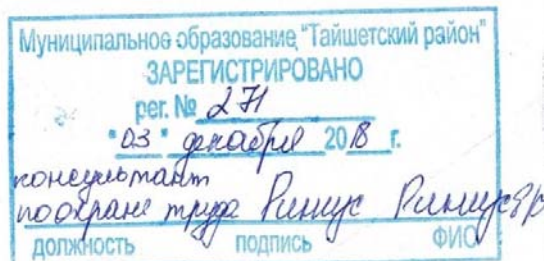 Муниципальное образование "Тайшетский район"
ЗАРЕГИСТРИРОВАНО
рег. № 271
"03" декабря 2018 г.
консультант
по охране труда
должность подпись ФИО